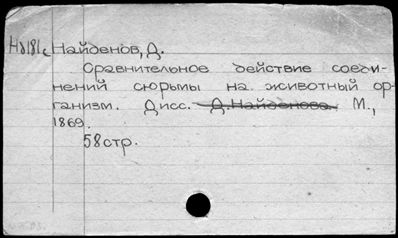 Нд181с Найденов, Д.
Сравнительное действие соеди-
нений сюрьмы на животный ор-
ганизм. Дисс. Д. Найденова. М.,
1869.
58стр.